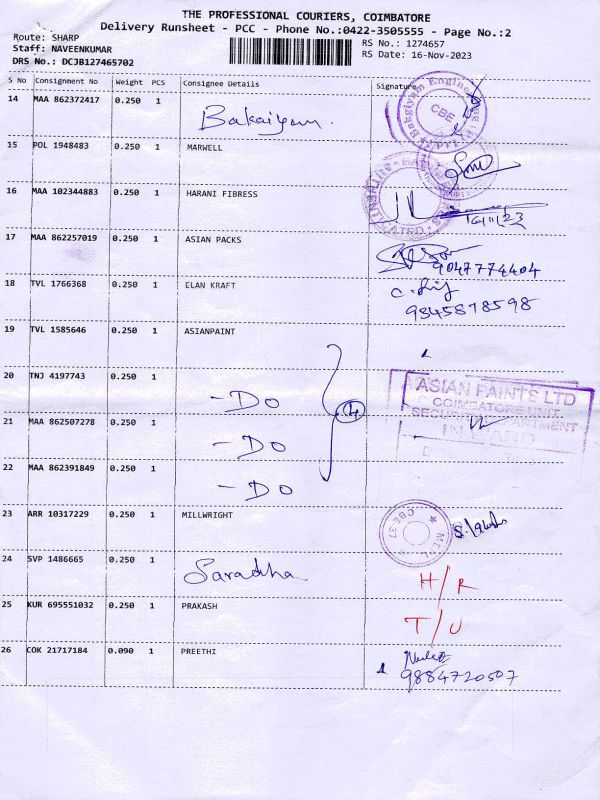 THE PROFESSIONAL COURIERS, COIMBATORE
Delivery Runsheet - PCC - Phone No.:0422-3505555 - Page No.:2
Route: SHARP
Staff: NAVEENKUMAR
DRS No.: DCJB127465702
RS No.: 1274657
RS Date: 16-Nov-2023
S No Consignment No Weight PCS Consignee Details Signature
14 MAA 862372417 0.250 1 Bakaiyam. CBE
15 POL 1948483 0.250 1 MARWELL
16 MAA 102344883 0.250 1 HARANI FIBRESS 16/11/23
17 MAA 862257019 0.250 1 ASIAN PACKS 9047774404
18 TVL 1766368 0.250 1 ELAN KRAFT 9345878598
19 TVL 1585646 0.250 1 ASIANPAINT
20 TNJ 4197743 0.250 1 - DO
21 MAA 862507278 0.250 1 - DO
22 MAA 862391849 0.250 1 - DO
4
ASIAN PAINTS LTD
COIMBATORE UNIT
SECURITY DEPARTMENT
INWARD
23 ARR 10317229 0.250 1 MILLWRIGHT
24 SVP 1486665 0.250 1 Saradha H/R
25 KUR 695551032 0.250 1 PRAKASH T/U
26 COK 21717184 0.090 1 PREETHI 9884720507